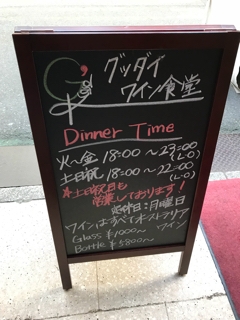 G'day
グッダイ
ワイン食堂
Dinner Time
火〜金 18:00〜23:00
(L・O)
土日祝 18:00〜22:00
(L・O)
*土日祝日も
営業しております!
定休日:月曜日
ワインはすべてオーストラリア
ワイン
Glass ¥1000〜
Bottle ¥5800〜